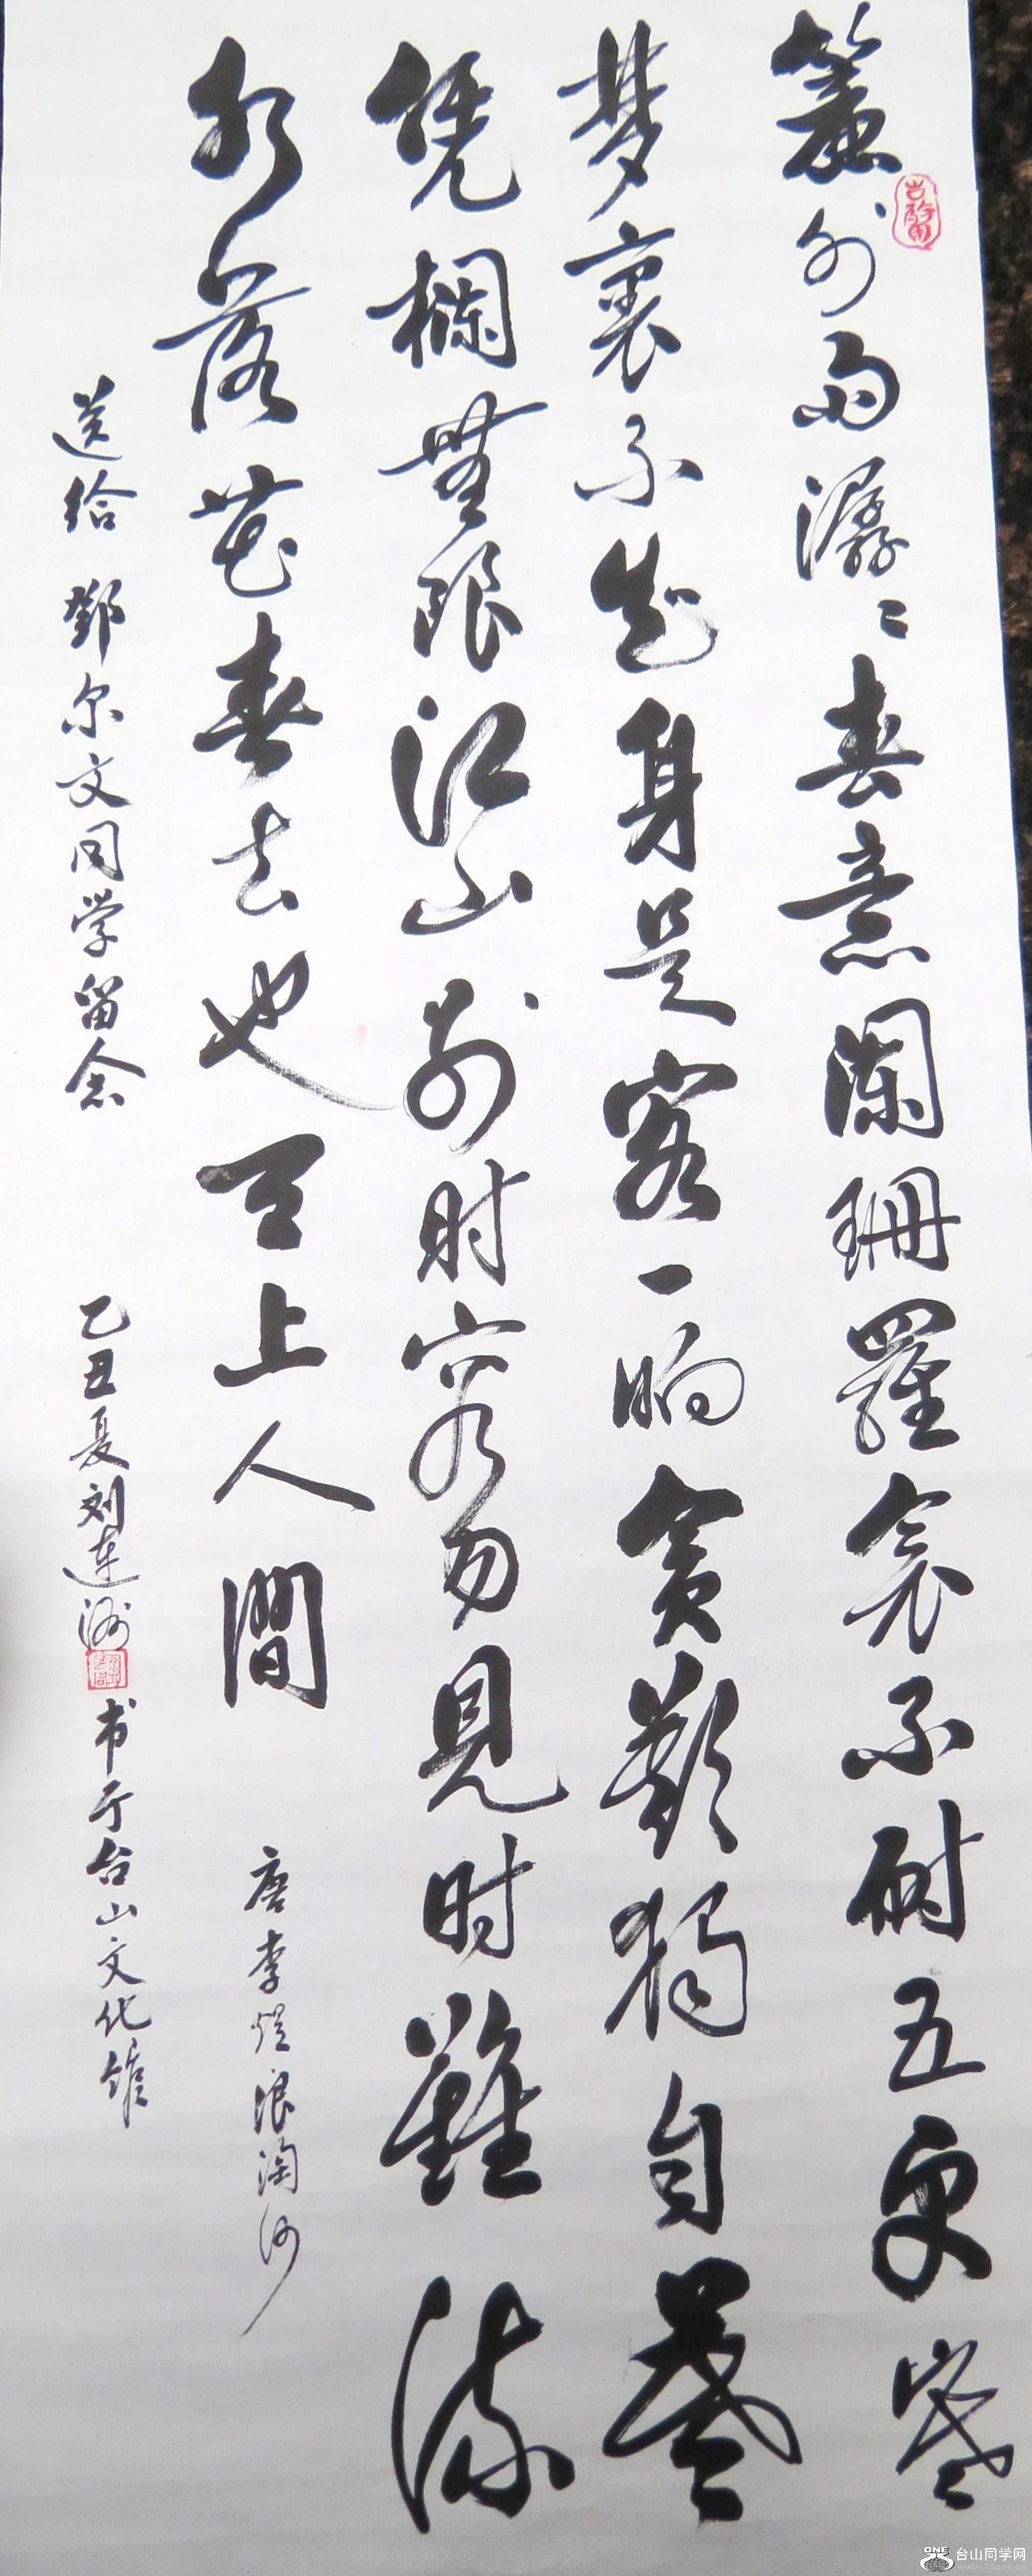 簾外雨潺〻春意闌珊羅衾不耐五更寒
梦裏不知身是客一晌貪歡獨自暮
凭欄無限江山别时容易見时難流
水落花春去也天上人間
唐李煜浪淘沙
送给 鄧尔文同学留念
乙丑夏刘连洲 书于台山文化馆
ONE 台山同学网